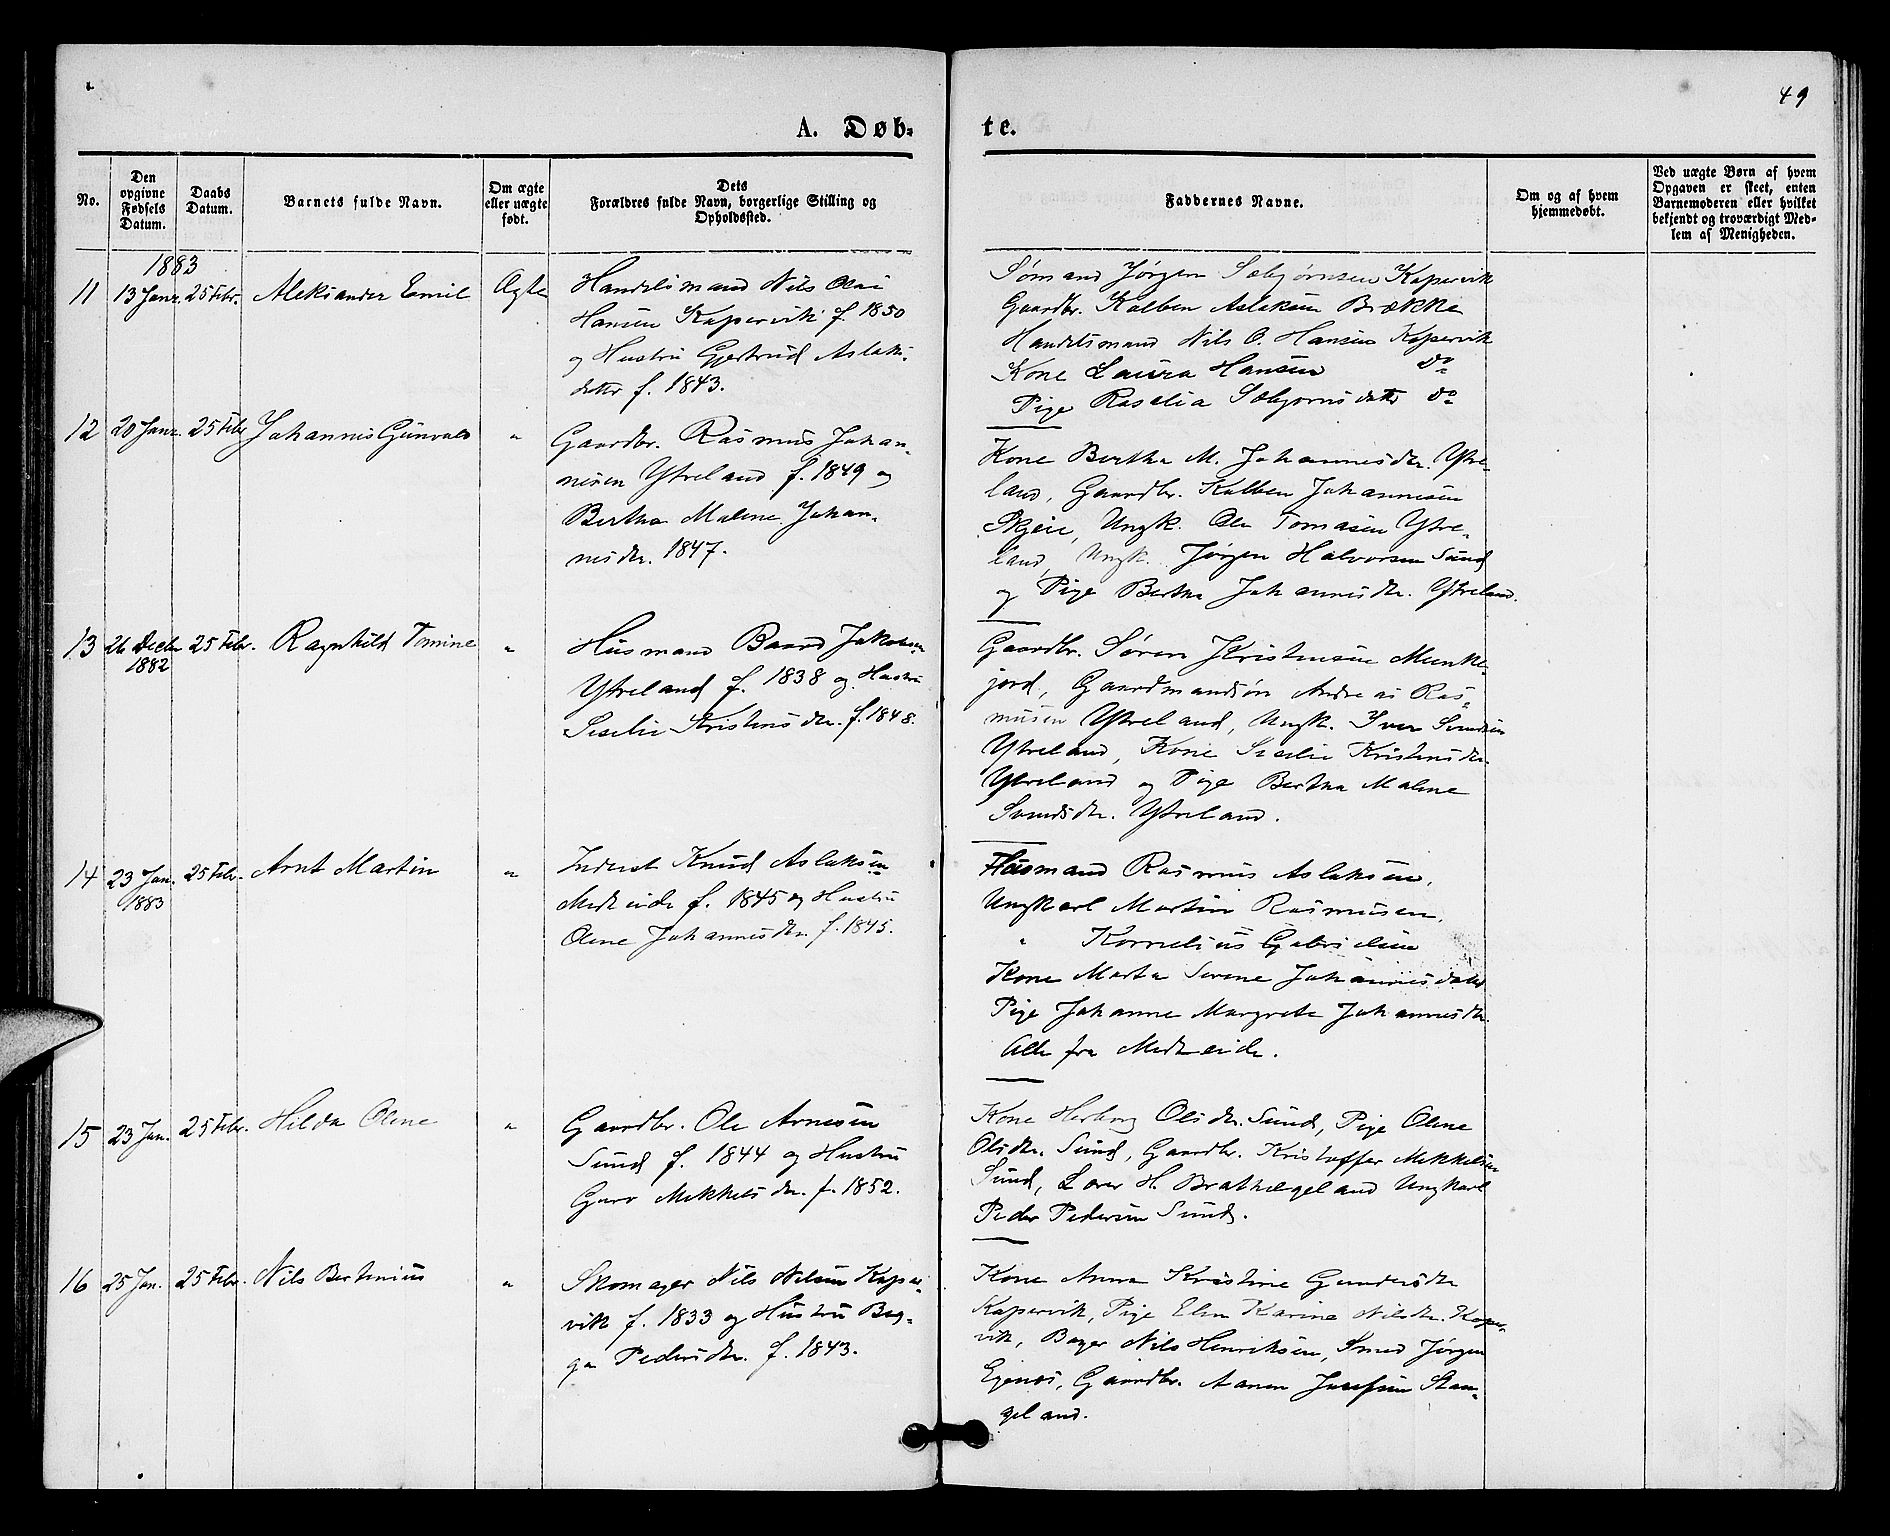 49
A. Døb-
te.
No.
Den
opgivne
Fødsels
Datum.
Daabs
Datum.
Barnets fulde Navn.
Om ægte
eller uægte
født.
Dets
Forældres fulde Navn, borgerlige Stilling og
Opholdssted.
Faddernes Navne.
Om og af hvem
hjemmedøbt.
Ved uægte Børn af hvem
Opgaven er skeet, enten
Barnemoderen eller hvilket
bekjendt og troværdigt Med-
lem af Menigheden.
1883
11 13 Janr. 25 Febr. Aleksander Emil Ægte
Handelsmand Nils Olai
Hansen Kopervik f. 1850
og Hustru Gjertrud Aslaks-
datter f. 1843.
Sømand Jørgen Sæbjørnsen Kopervik
Gaardbr. Kolben Aslaksen Brække
Handelsmand Nils O. Hansen Kopervik
Kone Laura Hansen do
Pige Roselia Sæbjornsdatter do
12 20 Janr. 25 Febr Johannes Gunvald "
Gaardbr. Rasmus Johan-
nesen Ytreland f. 1849 og
Bertha Malene Johan-
nesdtr. 1847.
Kone Bertha M. Johannesdtr. Ytre-
land, Gaardbr. Kolben Johannesen
Skjeie, Ungk. Ole Tomasen Ytre-
land, Ungk. Jørgen Halvorsen Sund
og Pige Bertha Johannesdtr. Ytreland.
13 26 Decbr 1882 25 Febr. Ragnhild Tomine "
Husmand Baard Jakobsen
Ytreland f. 1838 og Hustru
Siselie Kristensdtr. f. 1848.
Gaardbr. Søren Kristensen Munke-
jord, Gaardmandsøn Andreas Ras-
musen Ytreland, Ungk. Iver Svendsen
Ytreland, Kone Siselie Kristensdtr.
Ytreland og Pige Bertha Malene
Svendsdtr. Ytreland.
14 23 Jan. 1883 25 Febr. Arnt Martin "
Inderst Knud Aslaksen
Medheide f. 1845 og Hustru
Olene Johannesdtr. f. 1845.
Husmand Rasmus Aslaksen,
Ungkarl Martin Rasmusen,
" Kornelius Gabrielsen
Kone Marta Serene Johannesdatter
Pige Johanne Margrete Johannesdtr.
Alle fra Medheide.
15 23 Jan. 25 Febr. Hilda Olene "
Gaardbr. Ole Arnesen
Sund f. 1844 og Hustru
Guro Mikkelsdtr. f. 1852.
Kone Herborg Olsdtr. Sund, Pige Olene
Olsdtr. Sund, Gaardbr. Kristoffer Mikkelsen
Sund, Lærer H. Brathægeland Ungkarl
Peder Pedersen Sund.
16 25 Jan. 25 Febr. Nils Bertinius "
Skomager Nils Nilsen Koper-
vik f. 1833 og Hustru Beg-
ga Pedersdtr. f. 1843.
Kone Anna Kristine Gundersdtr
Kopervik, Pige Elen Karine Nilsdtr. Koper-
vik, Bager Nils Henriksen, Smed Jørgen
Egenes, Gaardbr. Aanen Josefsen Stan-
geland.